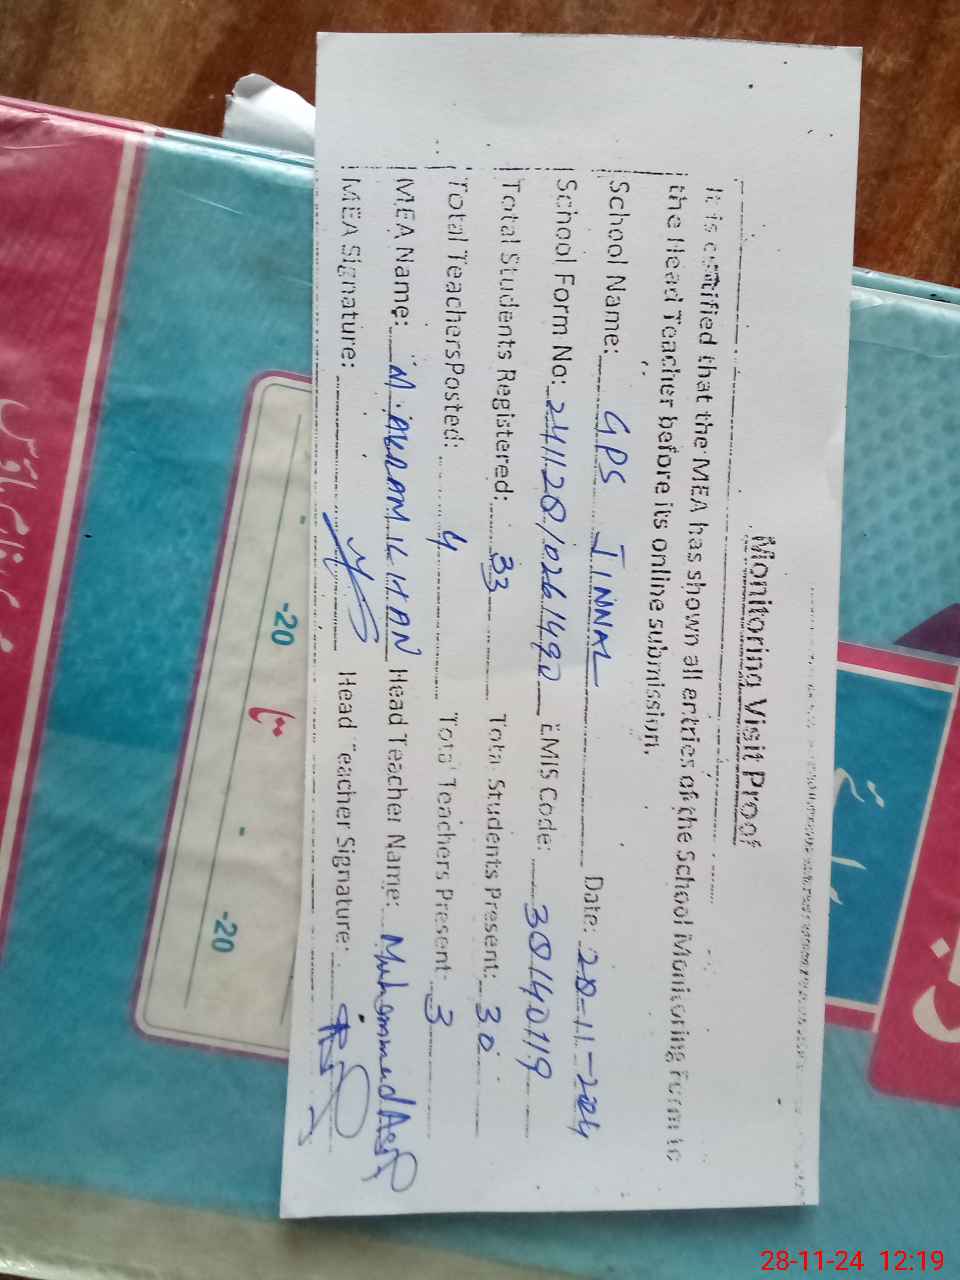 Monitoring Visit Proof
It is certified that the MEA has shown all entries of the School Monitoring Form to
the Head Teacher before its online submission.
School Name: GPS INNAL Date: 28-11-2024
School Form No: 241128/0261490 EMIS Code: 38140119
Total Students Registered: 33 Total Students Present: 30
Total Teachers Posted: 4 Total Teachers Present: 3
MEA Name: M. AKRAM KHAN Head Teacher Name: Muhammad Asif
MEA Signature: Head Teacher Signature:
-20 -20
28-11-24 12:19